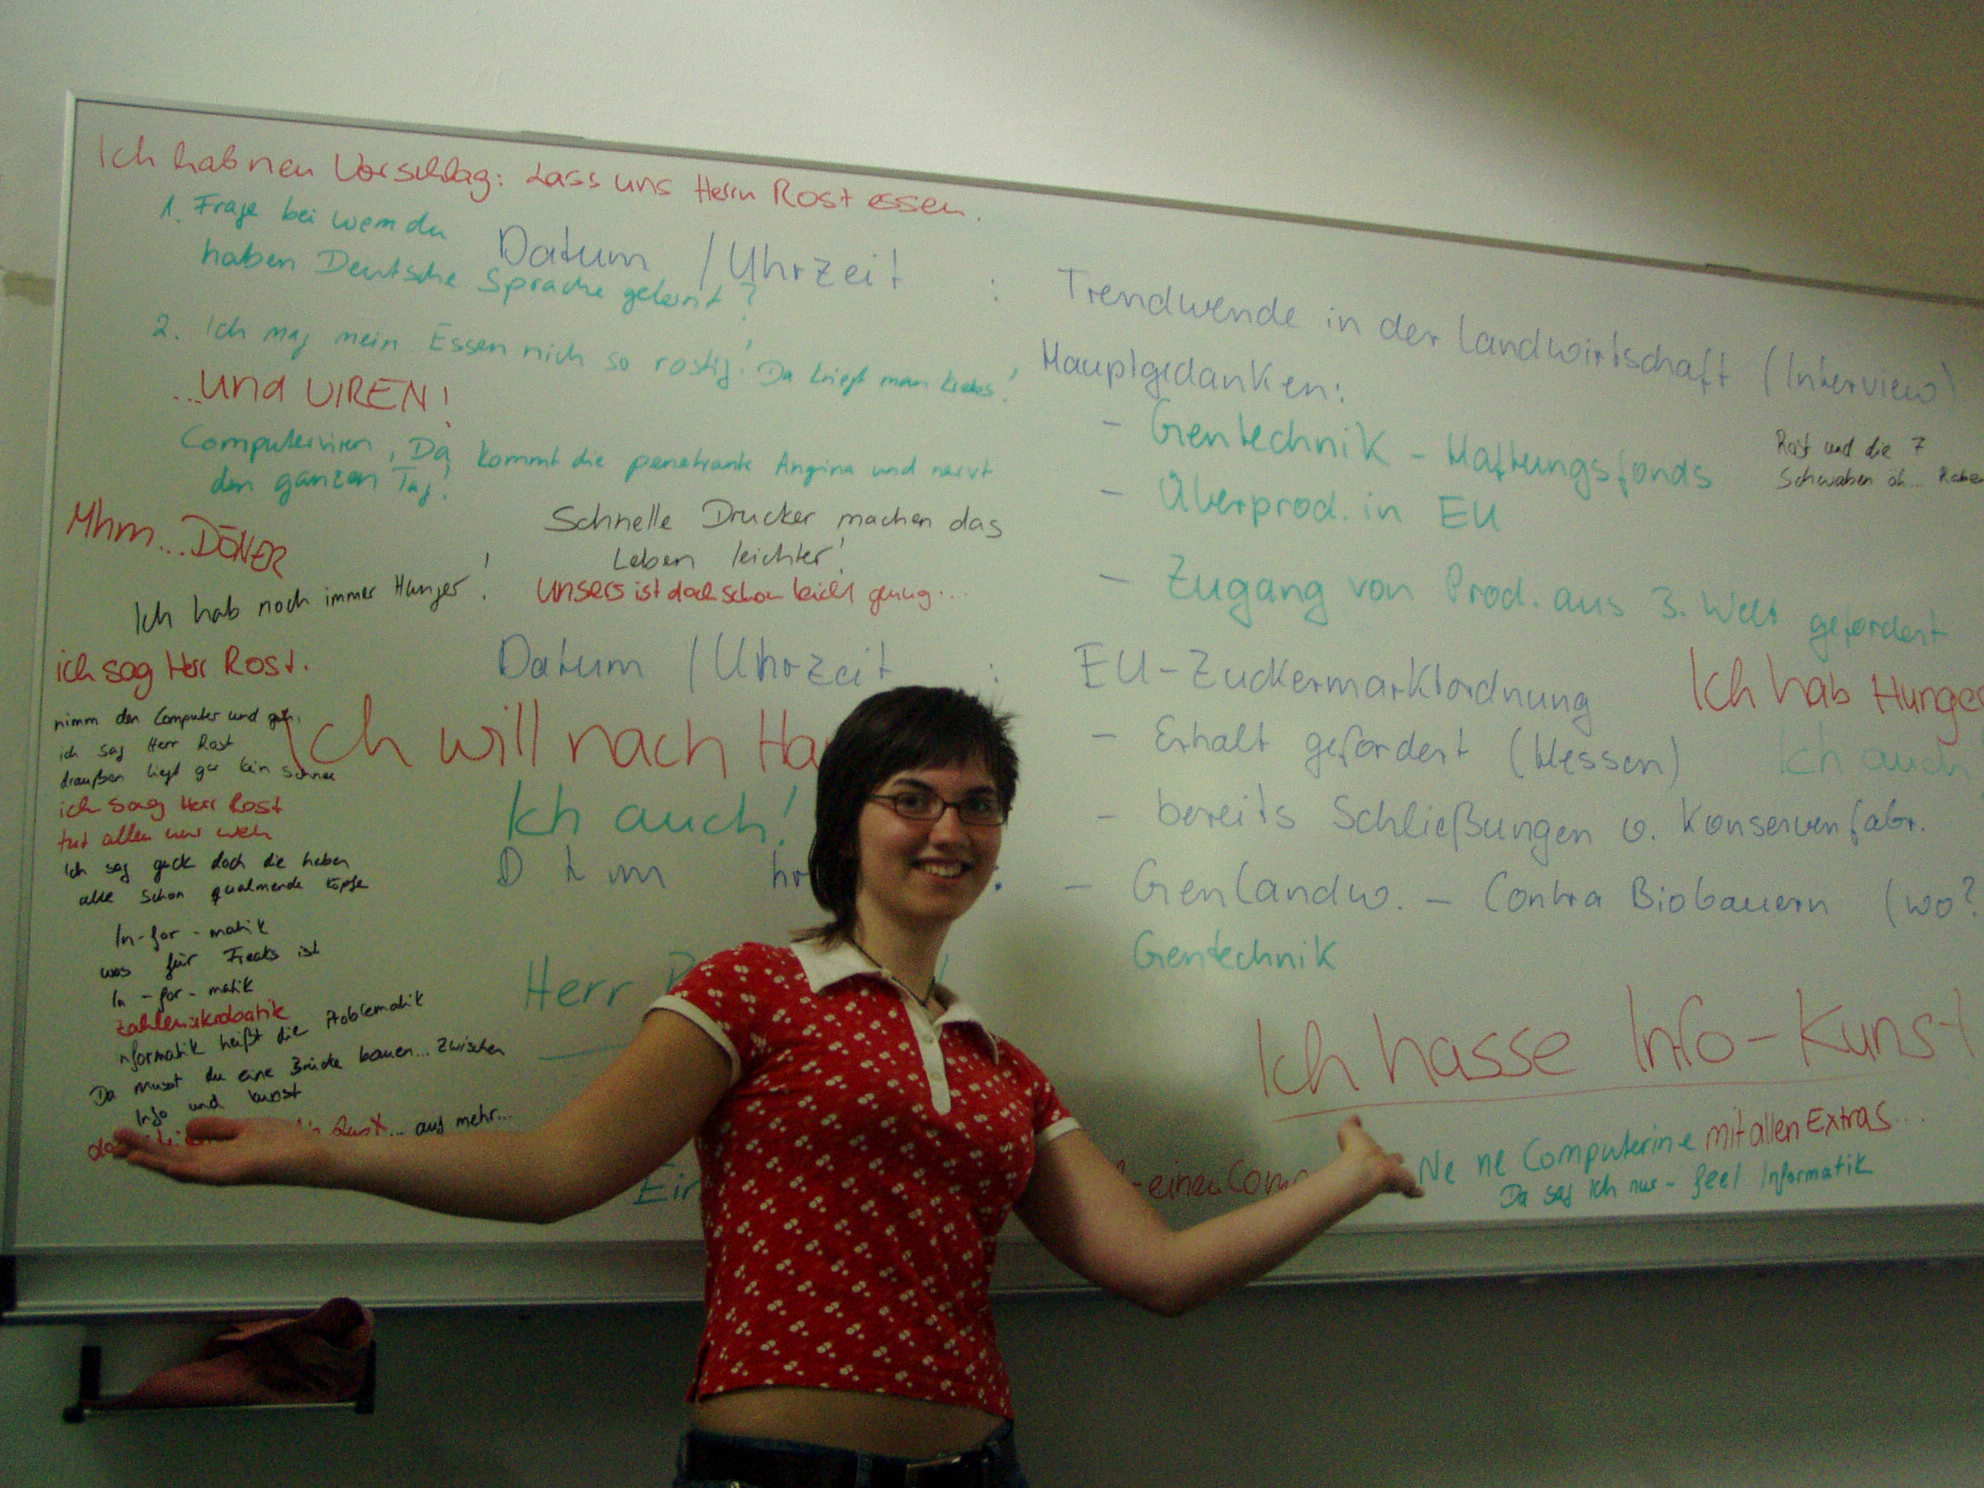 Ich hab nen Vorschlag: Lass uns Herrn Rost essen.
1. Frage bei wem du
haben Deutsche Sprache gelernt?
2. Ich mag mein Essen nich so rostig! Da kriegt man Krebs!
...und VIREN!
Computerviren, Da kommt die penetrante Angina und nervt
den ganzen Tag!
Mhm... DÖNER
Ich hab noch immer Hunger!
Schnelle Drucker machen das
Leben leichter!
Unsers ist doch schon leicht genug...
ich sag Herr Rost.
nimm den Computer und geh,
ich sag Herr Rost
draußen liegt gar kein Schnee
ich sag Herr Rost
tut allen nur weh
Ich sag guck doch die haben
alle schon qualmende Köpfe
In-for-matik
was für Freaks ist
In-for-matik
Zahlenakrobatik
nformatik heißt die Problematik
Da musst du eine Brücke bauen... zwischen
Info und Kunst
aus mehr...
Datum / Uhrzeit :
Datum / Uhrzeit :
Ich will nach Ha
Ich auch!
Herr
Trendwende in der Landwirtschaft (Interview)
Hauptgedanken:
- Gentechnik - Haftungsfonds
- Überprod. in EU
- Zugang von Prod. aus 3. Welt gefordert
Rost und die 7
Schwaben äh...
EU-Zuckermarktordnung
- Erhalt gefordert (Hessen)
- bereits Schließungen v. Konservenfabr.
- Genlandw. - Contra Biobauern (wo?
Gentechnik
Ich hab Hunge
Ich auch
Ich hasse Info-Kunst
einen Com
Ne ne Computerine mit allen Extras...
Da sag ich nur - feel Informatik